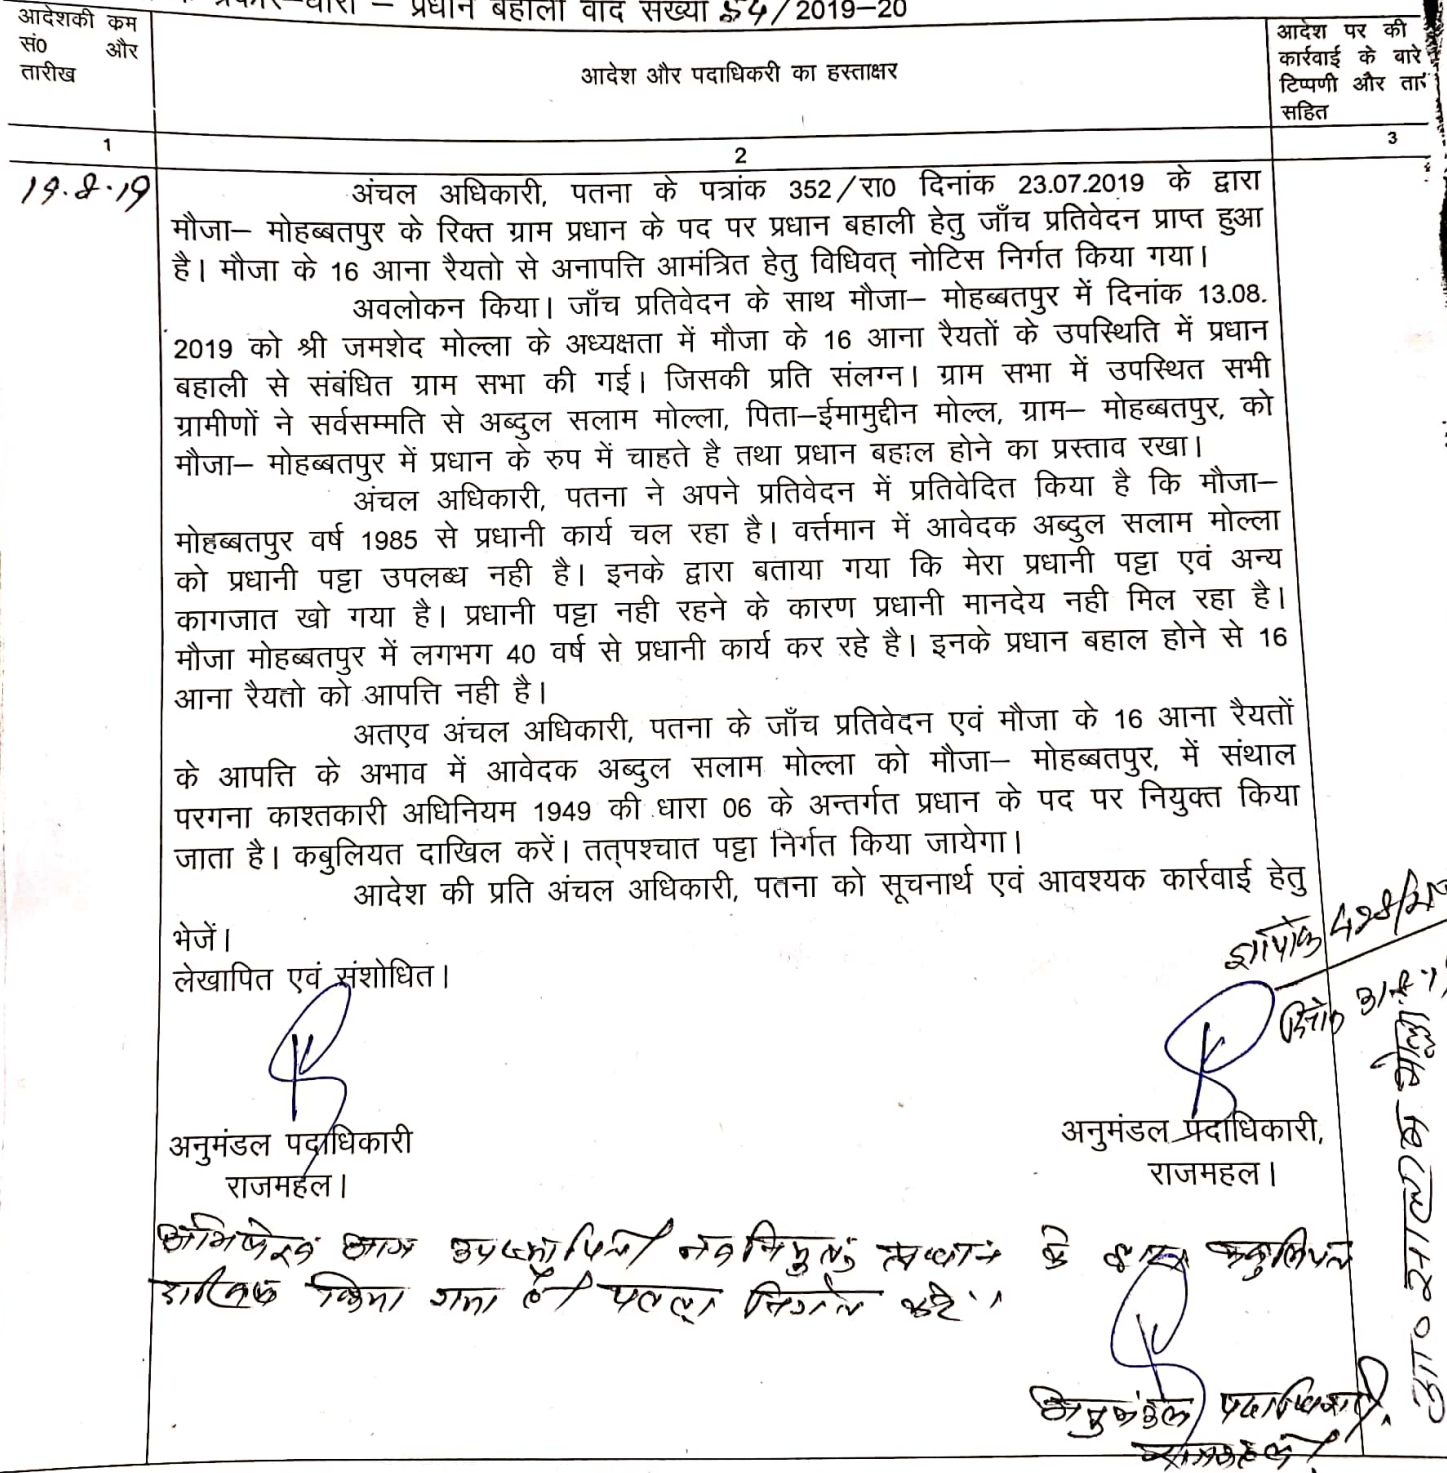 प्रकार–धारा – प्रधान बहाली वाद संख्या 54/2019–20
आदेशकी क्रम
सं0 और
तारीख
आदेश और पदाधिकरी का हस्ताक्षर
आदेश पर की
कार्रवाई के बारे
टिप्पणी और तारं
सहित
1
2
3
19.8.19
अंचल अधिकारी, पतना के पत्रांक 352/रा0 दिनांक 23.07.2019 के द्वारा
मौजा– मोहब्बतपुर के रिक्त ग्राम प्रधान के पद पर प्रधान बहाली हेतु जाँच प्रतिवेदन प्राप्त हुआ
है। मौजा के 16 आना रैयतो से अनापत्ति आमंत्रित हेतु विधिवत् नोटिस निर्गत किया गया।
अवलोकन किया। जाँच प्रतिवेदन के साथ मौजा– मोहब्बतपुर में दिनांक 13.08.
2019 को श्री जमशेद मोल्ला के अध्यक्षता में मौजा के 16 आना रैयतों के उपस्थिति में प्रधान
बहाली से संबंधित ग्राम सभा की गई। जिसकी प्रति संलग्न। ग्राम सभा में उपस्थित सभी
ग्रामीणों ने सर्वसम्मति से अब्दुल सलाम मोल्ला, पिता–ईमामुद्दीन मोल्ल, ग्राम– मोहब्बतपुर, को
मौजा– मोहब्बतपुर में प्रधान के रुप में चाहते है तथा प्रधान बहाल होने का प्रस्ताव रखा।
अंचल अधिकारी, पतना ने अपने प्रतिवेदन में प्रतिवेदित किया है कि मौजा–
मोहब्बतपुर वर्ष 1985 से प्रधानी कार्य चल रहा है। वर्त्तमान में आवेदक अब्दुल सलाम मोल्ला
को प्रधानी पट्टा उपलब्ध नही है। इनके द्वारा बताया गया कि मेरा प्रधानी पट्टा एवं अन्य
कागजात खो गया है। प्रधानी पट्टा नही रहने के कारण प्रधानी मानदेय नही मिल रहा है।
मौजा मोहब्बतपुर में लगभग 40 वर्ष से प्रधानी कार्य कर रहे है। इनके प्रधान बहाल होने से 16
आना रैयतो को आपत्ति नही है।
अतएव अंचल अधिकारी, पतना के जाँच प्रतिवेदन एवं मौजा के 16 आना रैयतों
के आपत्ति के अभाव में आवेदक अब्दुल सलाम मोल्ला को मौजा– मोहब्बतपुर, में संथाल
परगना काश्तकारी अधिनियम 1949 की धारा 06 के अन्तर्गत प्रधान के पद पर नियुक्त किया
जाता है। कबुलियत दाखिल करें। तत्पश्चात पट्टा निर्गत किया जायेगा।
आदेश की प्रति अंचल अधिकारी, पतना को सूचनार्थ एवं आवश्यक कार्रवाई हेतु
भेजें।
लेखापित एवं संशोधित।
ज्ञापांक 428/रा0
दिनांक 31.8.19
अनुमंडल पदाधिकारी
राजमहल।
अनुमंडल पदाधिकारी,
राजमहल।
अभिलेख आज उपस्थापित। नवनियुक्त प्रधान के द्वारा कबुलियत
दाखिल किया गया है। पट्टा निर्गत करें।
अनुमंडल पदाधिकारी,
राजमहल।